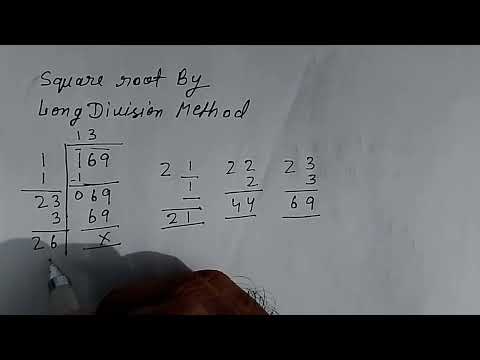 Square root By
Long Division Method
1 3
1 169
1 1
23 069
3 69
26 x
2 1
1
21
2 2
2
44
2 3
3
69